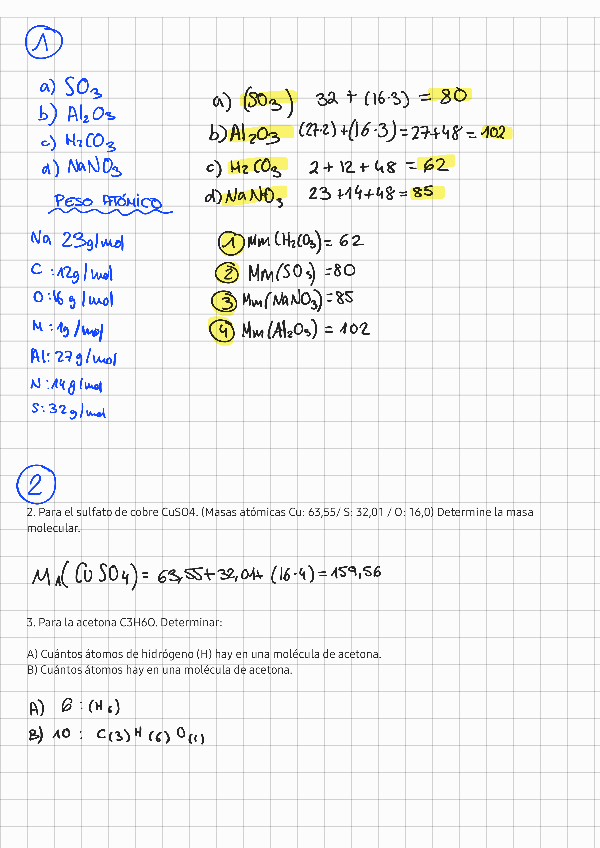 1
a) SO3
b) Al2O3
c) H2CO3
d) NaNO3
PESO ATÓMICO
Na 23g/mol
C : 12g/mol
O : 16 g/mol
H : 1g/mol
Al : 27g/mol
N : 14g/mol
S : 32g/mol
a) (SO3) 32 + (16·3) = 80
b) Al2O3 (27·2)+(16·3)=27+48=102
c) H2CO3 2+12+48 = 62
d) NaNO3 23+14+48=85
1 Mm(H2CO3)= 62
2 Mm(SO3) =80
3 Mm(NaNO3)=85
4 Mm(Al2O3) = 102
2
2. Para el sulfato de cobre CuSO4. (Masas atómicas Cu: 63,55/ S: 32,01 / O: 16,0) Determine la masa
molecular.
(CuSO4)= 63,55+32,01+ (16·4)=159,56
3. Para la acetona C3H6O. Determinar:
A) Cuántos átomos de hidrógeno (H) hay en una molécula de acetona.
B) Cuántos átomos hay en una molécula de acetona.
A) 6 : (H6)
B) 10 : C(3) H(6) O(1)